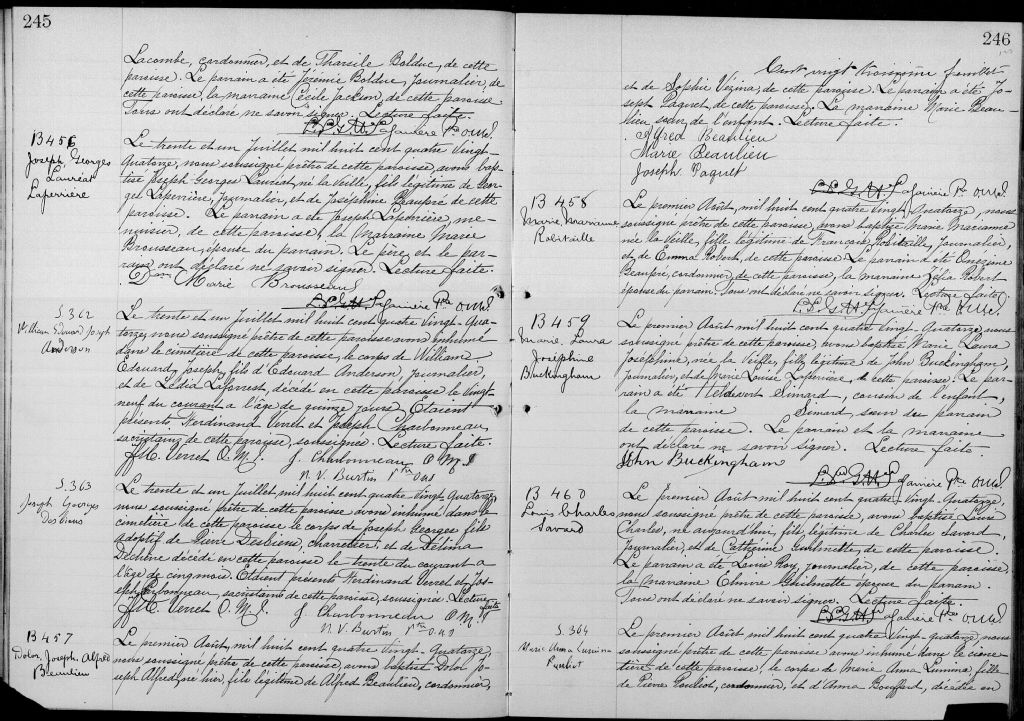 245
Lacombe, cordonnier, et de Tharsile Bolduc, de cette
paroisse. Le parrain a été Jérémie Bolduc, journalier, de
cette paroisse, la marraine Cécile Jackson, de cette paroisse
Tous ont déclaré ne savoir signer. Lecture faite.
Lafrière Ptre O.M.I.
B 456
Joseph Georges
Lauréat
Laperrière
Le trente et un Juillet mil huit cent quatre vingt-
Quatorze, nous soussigné prêtre de cette paroisse, avons bap-
tisé Joseph Georges Lauréat, né la Veille, fils légitime de Geor-
ges Laperrière, Journalier, et de Joséphine Beaupré de cette
paroisse. Le parrain a été Joseph Laperrière, me-
nuisier, de cette paroisse, la Marraine Marie
Brousseau, épouse du parrain. Le père et le par-
rain ont déclaré ne savoir signer. Lecture faite.
Dam Marie Brousseau
Lafrière Ptre O.M.I.
S. 362
William Edouard Joseph
Anderson
Le trente et un Juillet mil huit cent quatre vingt-Qua-
torze, nous soussigné prêtre de cette paroisse avons inhumé
dans le cimetière de cette paroisse, le corps de William
Edouard Joseph, fils d'Edouard Anderson, Journalier,
et de Lédia Laforrest, décédé en cette paroisse le vingt-
neuf du courant à l'âge de quinze jours. Etaient
présents Ferdinand Verret et Joseph Charbonneau,
sacristains de cette paroisse, soussignés. Lecture faite.
M. Verret O.M.I. J. Charbonneau O M I
N. V. Burtin Ptre OMI
S. 363
Joseph Georges
Desbiens
Le trente et un Juillet mil huit cent quatre vingt Quatorze
nous soussigné prêtre de cette paroisse avons inhumé dans le
cimetière de cette paroisse le corps de Joseph Georges fils
adoptif de Pierre Desbiens, charretier, et de Délima
Dechène décédé en cette paroisse le trente du courant a
l'âge de cinq mois. Etaient présents Ferdinand Verret et Jos-
eph Charbonneau, sacristains de cette paroisse, soussignés. Lecture
faite
M. Verret O.M.I. J. Charbonneau O M I
N. V. Burtin Ptre OMI
B 457
Dolor, Joseph, Alfred
Beaulieu
Le premier Août, mil huit cent quatre vingt-Quatorze,
nous soussigné prêtre de cette paroisse, avons baptisé Dolor Jo-
seph Alfred, né hier, fils légitime de Alfred Beaulieu, cordonnier,
246
Cent vingt troisième feuillet
et de Sophie Vézina, de cette paroisse. Le parrain a été Jo-
seph Paquet, de cette paroisse. La marraine Marie Beau-
lieu sœur de l'enfant. Lecture faite.
Alfred Beaulieu
Marie Beaulieu
Joseph Paquet
Lafrière Ptre O.M.I.
B 458
Marie Marianne
Robitaille
Le premier Août, mil huit cent quatre vingt Quatorze, nous
soussigné prêtre de cette paroisse, avons baptisé Marie Marianne
née la Veille, fille légitime de François Robitaille, Journalier,
et de Emma Robert, de cette paroisse. Le parrain a été Onézime
Beaupré, cordonnier, de cette paroisse, la marraine Robert
épouse du parrain. Tous ont déclaré ne savoir signer. Lecture faite.
Lafrière Ptre O.M.I.
B 459
Marie, Laura
Joséphine
Buckingham
Le premier Août mil huit cent quatre vingt-Quatorze, nous
soussigné prêtre de cette paroisse, avons baptisé Marie Laura
Joséphine, née la Veille, fille légitime de John Buckingham,
Journalier, et de Marie Louise Laperrière, de cette paroisse. Le par-
rain a été Simard, cousin de l'enfant,
la marraine Simard, sœur du parrain
de cette paroisse. Le parrain et la marraine
ont déclaré ne savoir signer. Lecture faite.
John Buckingham
Lafrière Ptre O.M.I.
B 460
Louis Charles
Savard
Le premier Août mil huit cent quatre vingt-Quatorze
nous soussigné prêtre de cette paroisse, avons baptisé Louis
Charles, né aujourd'hui, fils légitime de Charles Savard,
Journalier, et de Catherine Guilmette, de cette paroisse.
Le parrain a été Louis Roy, journalier, de cette paroisse,
la marraine Elmire Guilmette épouse du parrain.
Tous ont déclaré ne savoir signer. Lecture faite.
Lafrière Ptre O.M.I.
S. 364
Marie Anna Lumina
Pouliot
Le premier Août mil huit cent quatre vingt-quatorze, nous
soussigné prêtre de cette paroisse avons inhumé dans le cime-
tière de cette paroisse, le corps de Marie Anna Lumina, fille
de Pierre Pouliot, cordonnier, et d'Anna Bouffard, décédée en